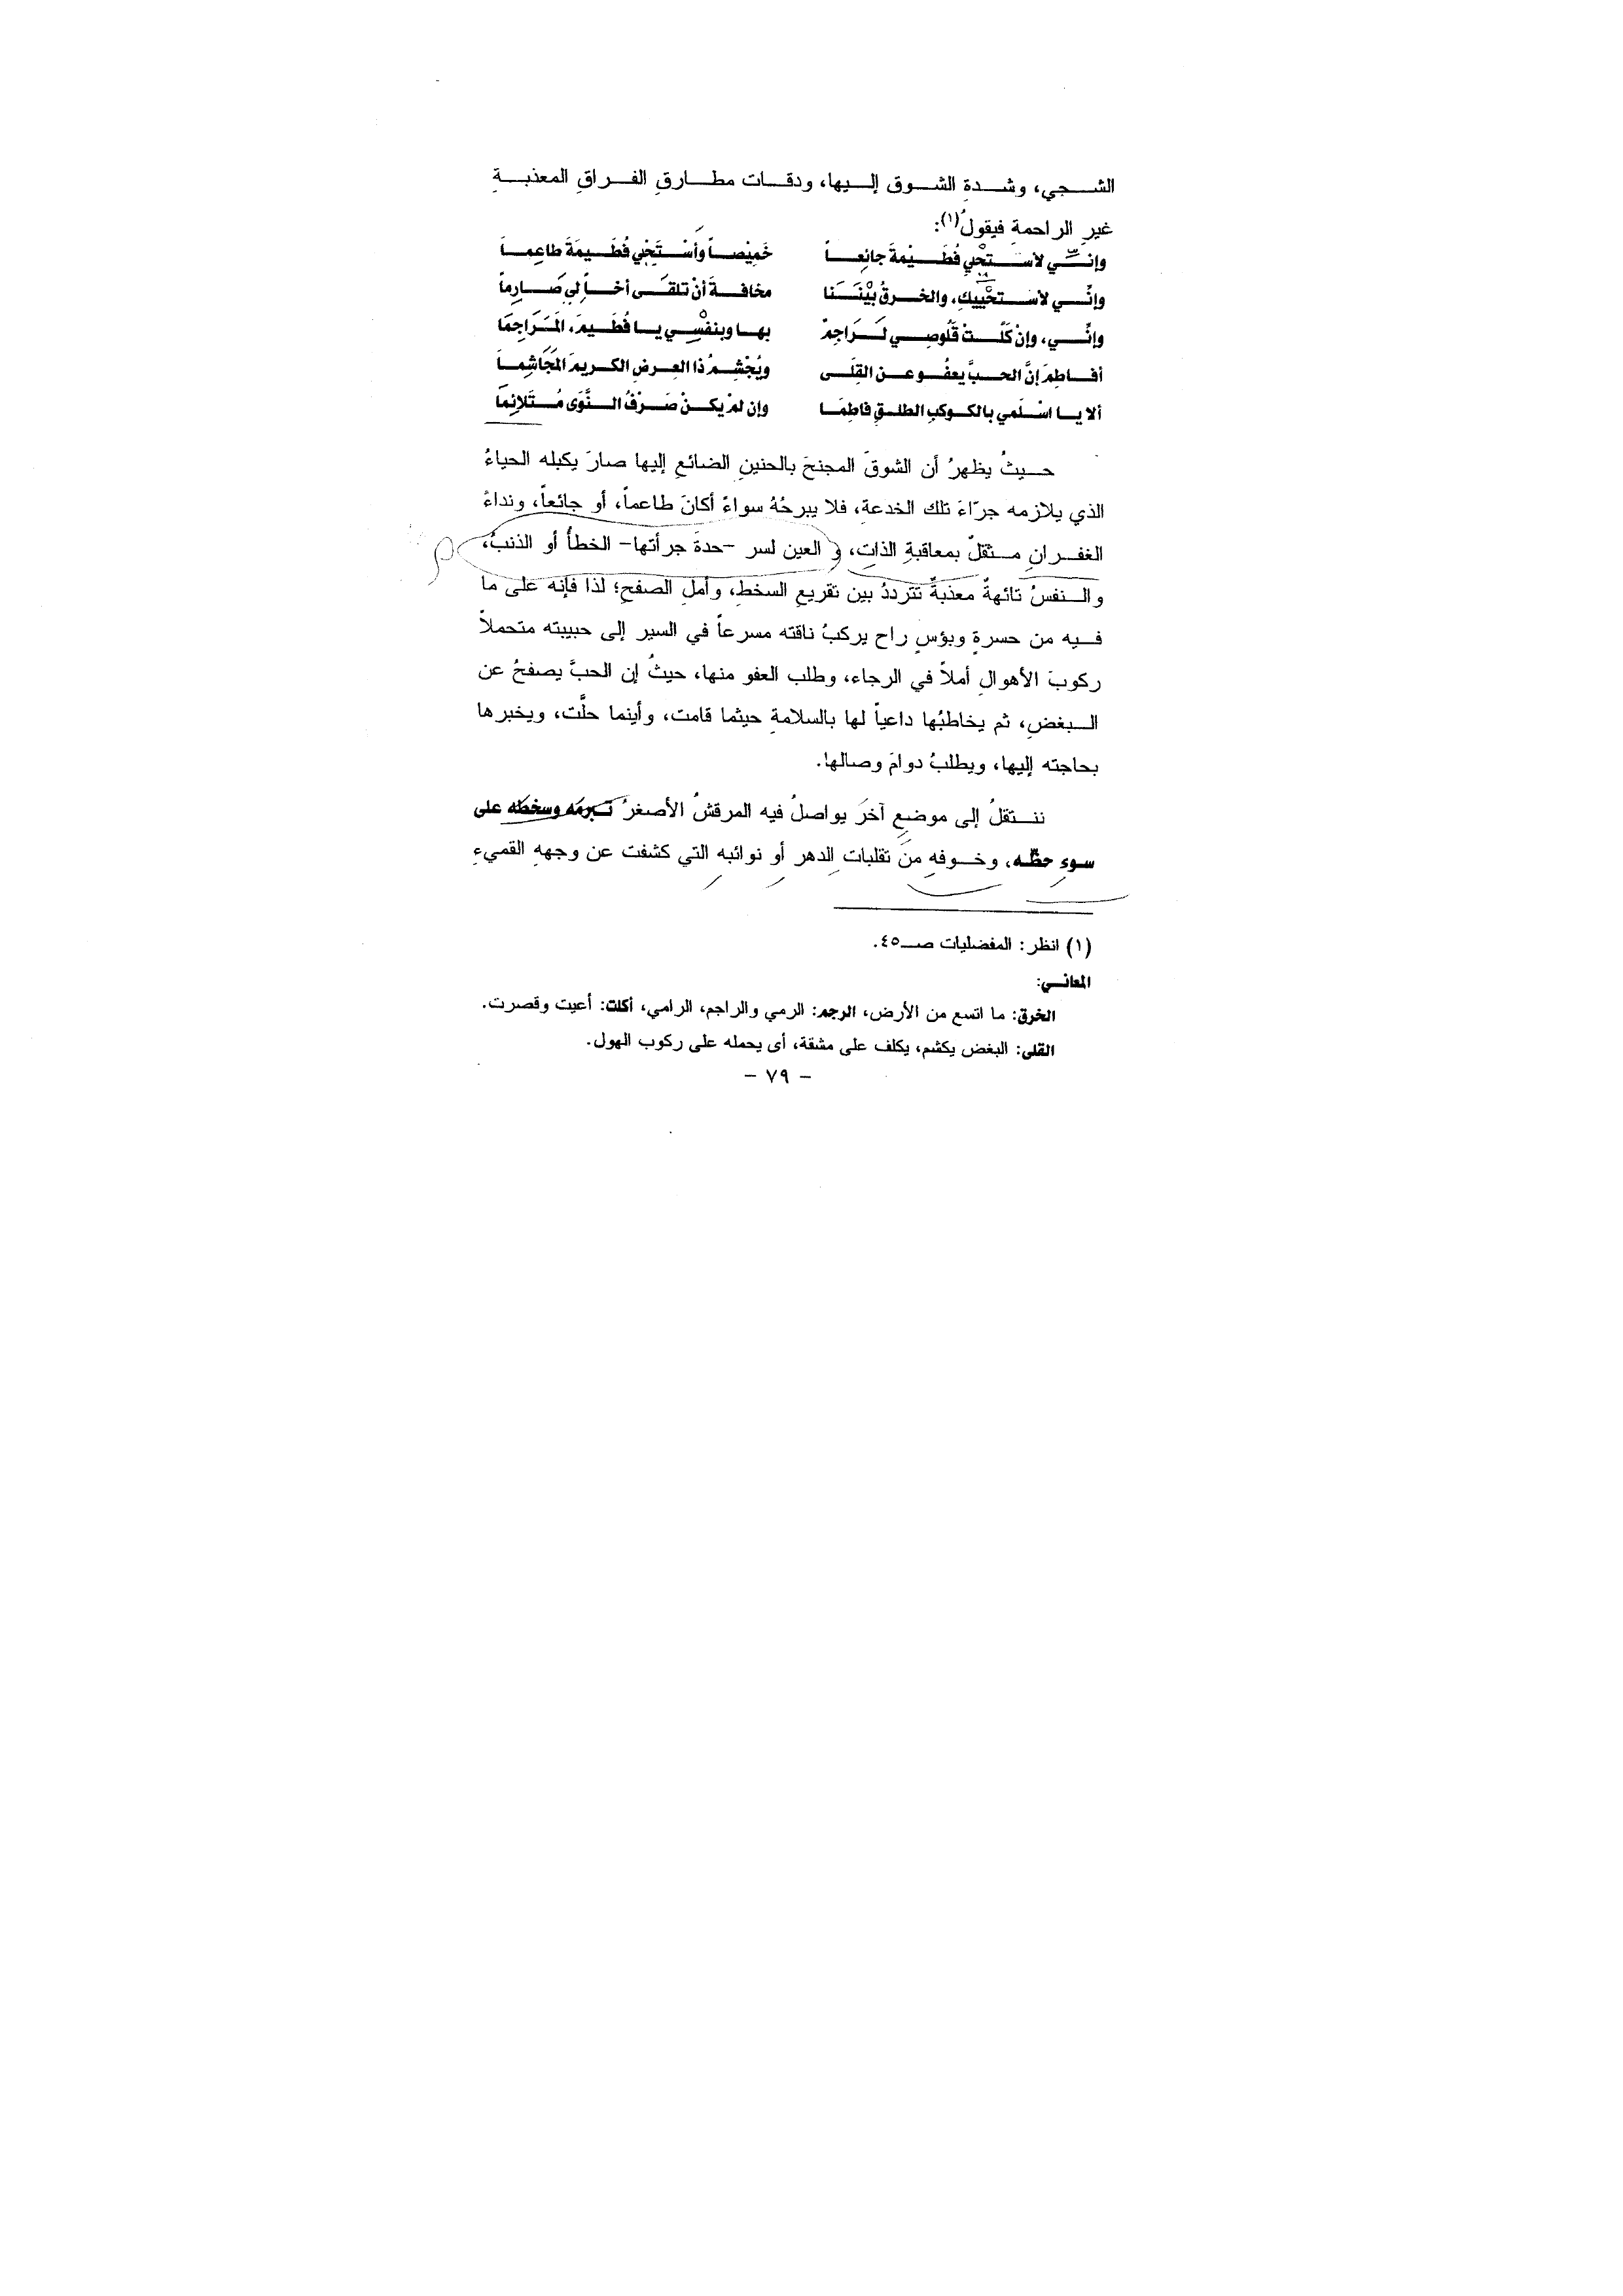 الشجي، وشدةِ الشوق إليها، ودقات مطارقِ الفراقِ المعذبةِ
غيرِ الراحمةِ فيقولُ(١):
وإنِّي لاستحْيِ فُطَيْمةَ جائِعاً خَمِيْصاً وأسْتَحْي فُطَيمَةَ طاعِما
وإنِّي لاستحْيِيكِ، والخرقُ بيْنَنَا مخافةَ أنْ تلقَى أخاً لي صَارِماً
وإنِّي، وإنْ كَلَّتْ قَلُوصِي لَرَاجِمٌ بها وبنفْسِي يا فُطَيمَ، المَرَاجِمَا
أفاطِمَ إنَّ الحبَّ يعفُو عن القِلَى ويُجْشِمُ ذا العِرضِ الكريمَ المَجَاشِما
ألا يا اسْلَمي بالكوكبِ الطلقِ فاطِمَا وإن لمْ يكنْ صَرْفُ النَّوَى مُتَلائِمَا
حيثُ يظهرُ أن الشوقَ المجنحَ بالحنينِ الضائعِ إليها صارَ يكبله الحياءُ
الذي يلازمه جرّاءَ تلك الخدعةِ، فلا يبرحُهُ سواءً أكانَ طاعماً، أو جائعاً، ونداءُ
الغفرانِ مثقلٌ بمعاقبةِ الذاتِ، و العين لسر –حدةَ جرأتها– الخطأُ أو الذنبُ،
والنفسُ تائهةٌ معذبةٌ تترددُ بين تقريعِ السخطِ، وأملِ الصفحِ؛ لذا فإنه على ما
فيه من حسرةٍ وبؤسٍ راح يركبُ ناقته مسرعاً في السير إلى حبيبته متحملاً
ركوبَ الأهوالِ أملاً في الرجاء، وطلب العفو منها، حيثُ إن الحبَّ يصفحُ عن
البغضِ، ثم يخاطبُها داعياً لها بالسلامةِ حيثما قامت، وأينما حلَّت، ويخبرها
بحاجته إليها، ويطلبُ دوامَ وصالها.
ننتقلُ إلى موضعٍ آخرَ يواصلُ فيه المرقشُ الأصغرُ تبرمَه وسخطَه على
سوءِ حظّه، وخوفهِ منَ تقلباتِ الدهرِ أو نوائبهِ التي كشفت عن وجههِ القميءِ
(١) انظر: المفضليات صـ٤٥.
المعاني:
الخرق: ما اتسع من الأرض، الرجم: الرمي والراجم، الرامي، أكلت: أعيت وقصرت.
القلى: البغض يكشم، يكلف على مشقة، أى يحمله على ركوب الهول.
– ٧٩ –